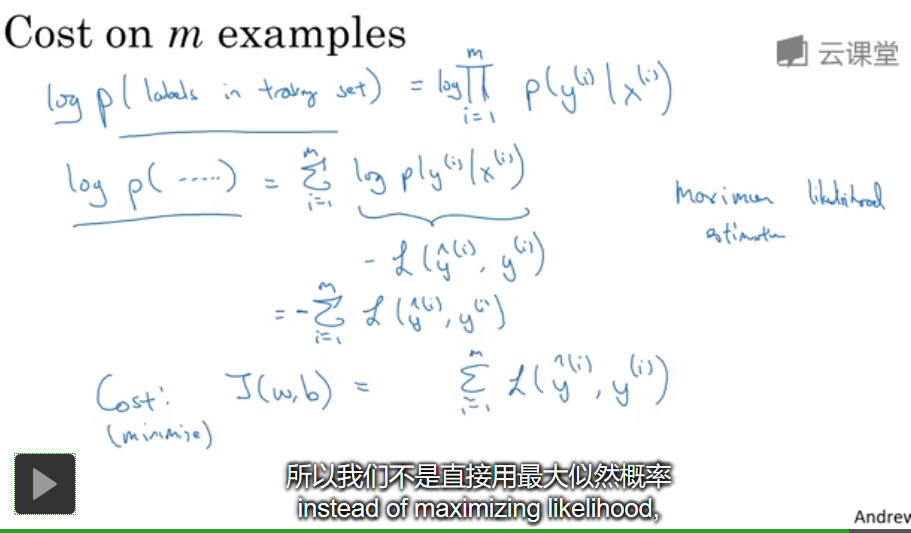 Cost on m examples
云课堂
log p( labels in training set ) = log ∏_{i=1}^{m} p(y^{(i)}|x^{(i)})
log p( ..... ) = Σ_{i=1}^{m} log p(y^{(i)}|x^{(i)})
Maximum likelihood
estimation
- L(ŷ^{(i)}, y^{(i)})
= - Σ_{i=1}^{m} L(ŷ^{(i)}, y^{(i)})
Cost: J(w,b) = Σ_{i=1}^{m} L(ŷ^{(i)}, y^{(i)})
(minimize)
所以我们不是直接用最大似然概率
instead of maximizing likelihood,
Andrew